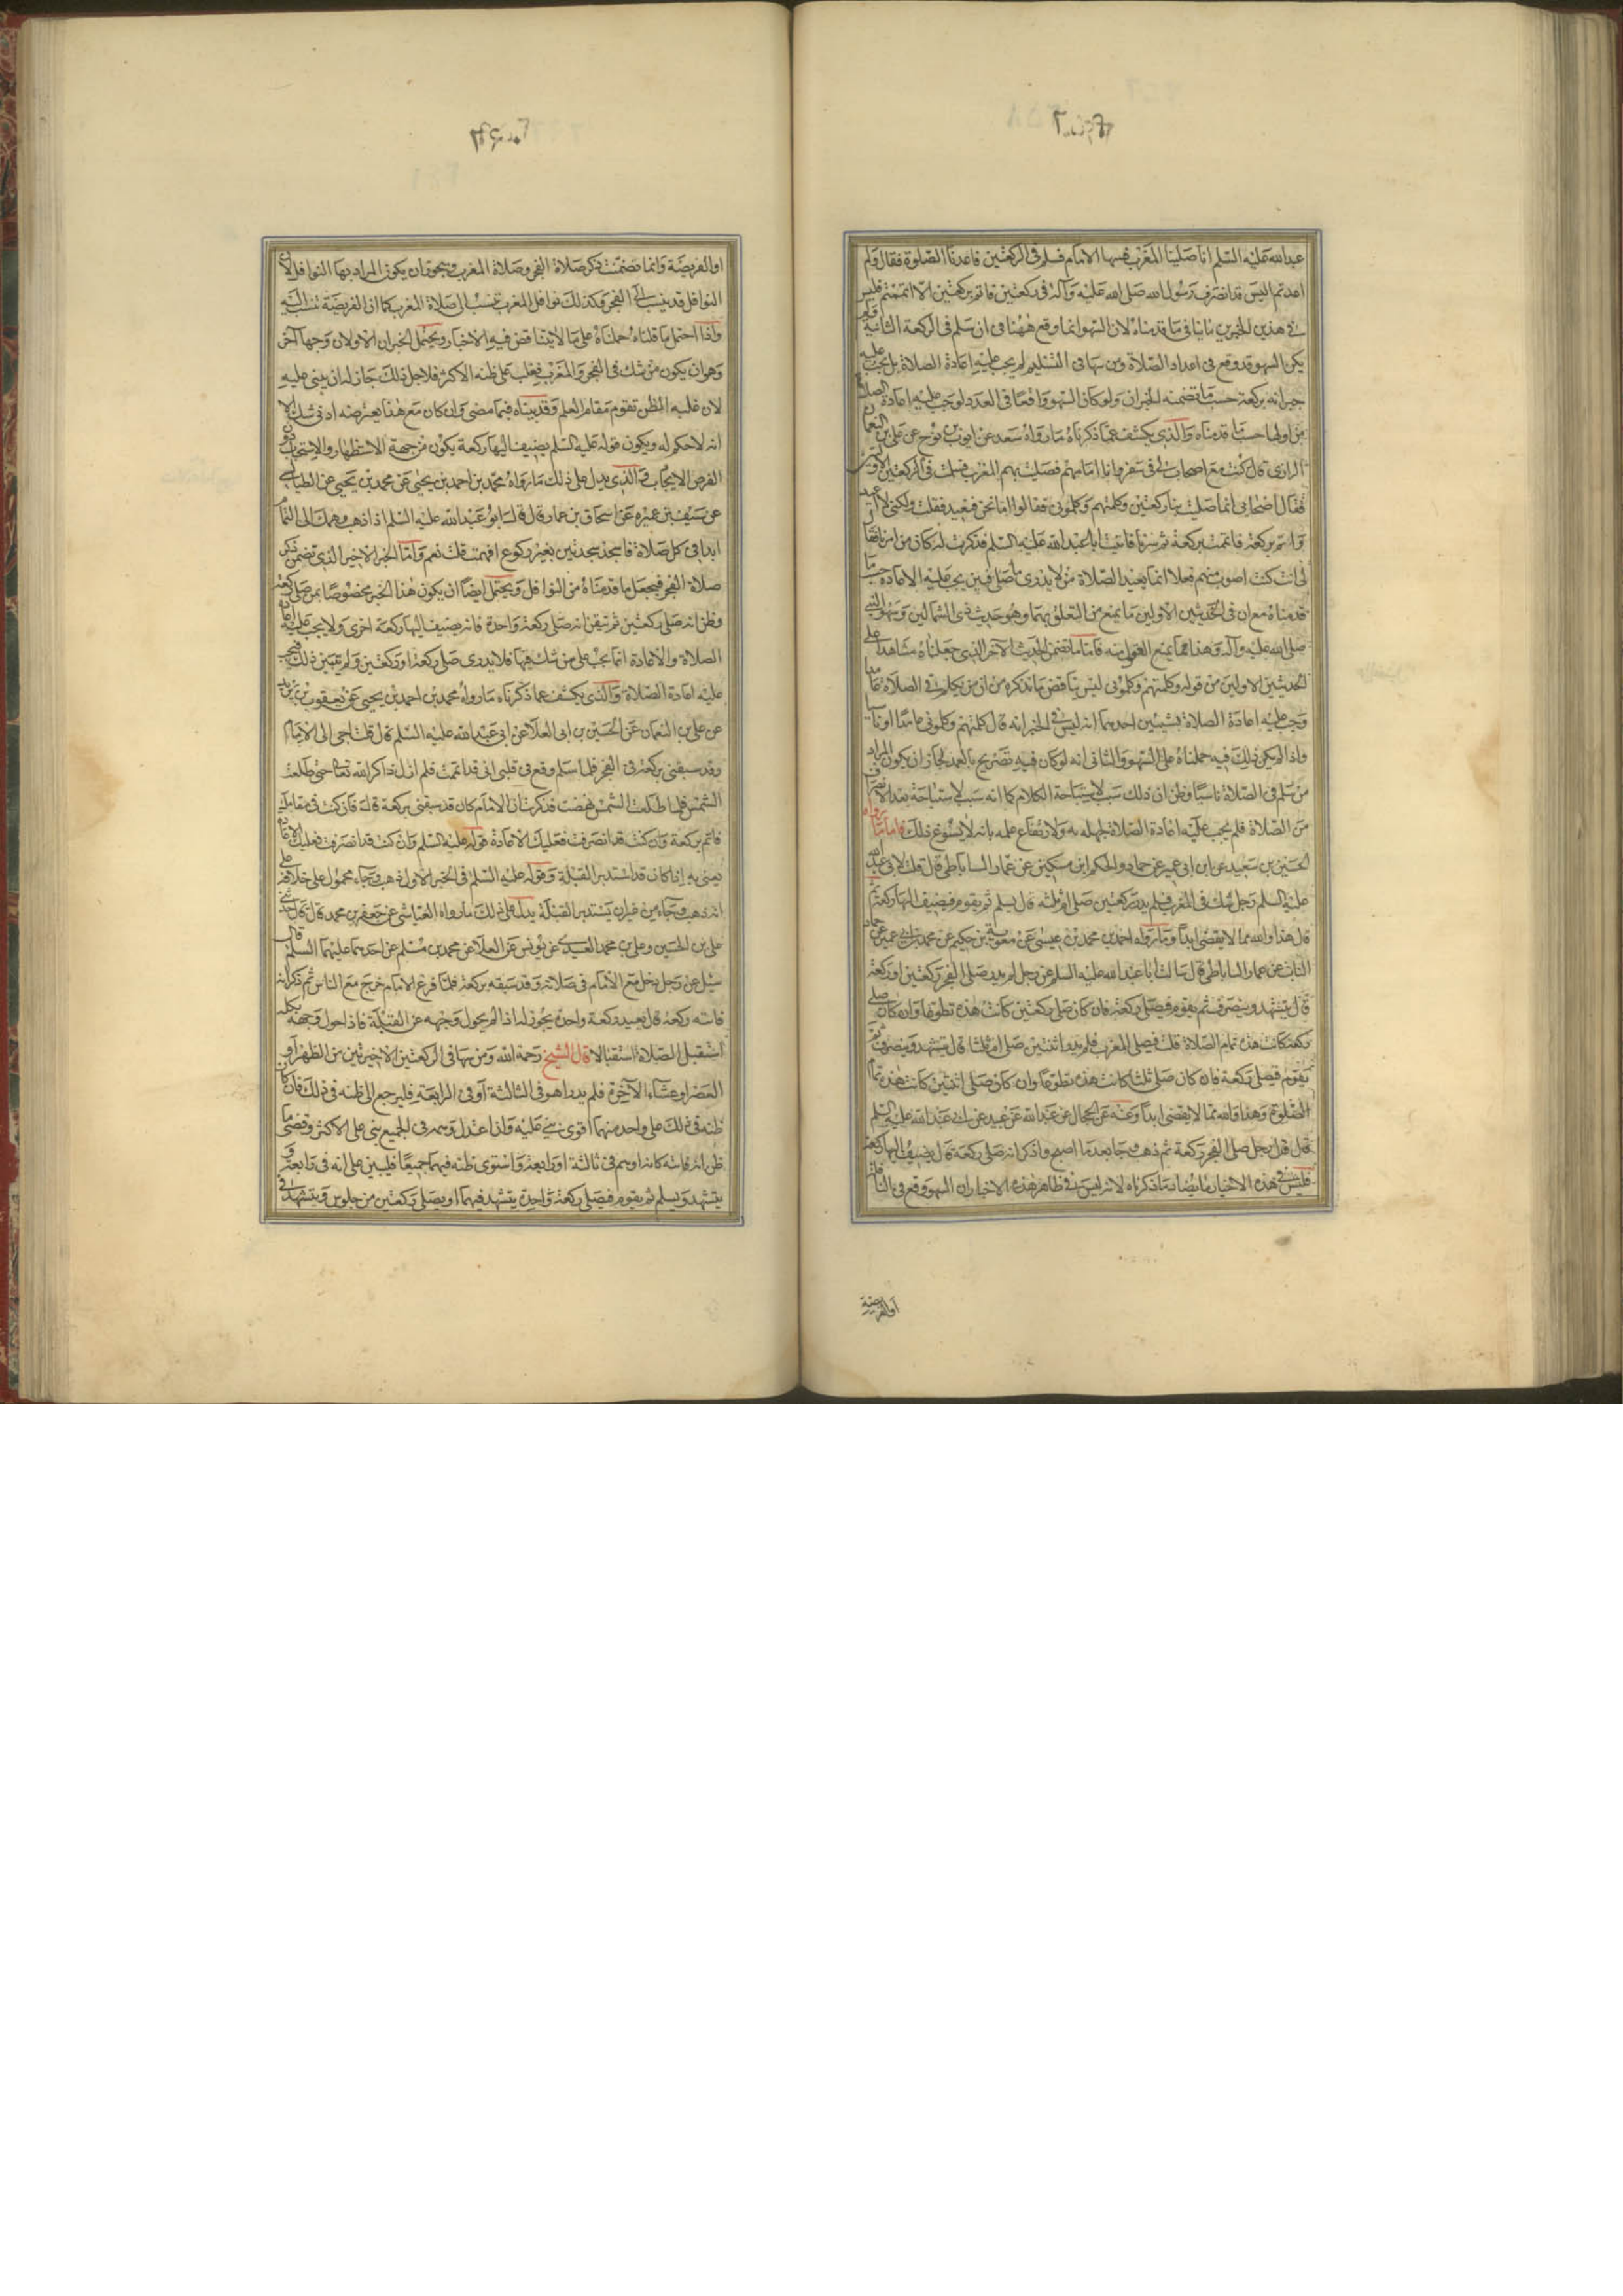 عبدالله عليه السلم انا صلينا المغرب فسها الامام فسلم فى الركعتين فاعدنا الصلوة فقال ولم
اعدتم اليس قد انصرف رسول الله صلى الله عليه وآله فى ركعتين فاتم بركعتين الا اتممتم فليس
فى هذين الخبرين ما ينافى ما قدمناه لان السهو انما وقع ههنا فى ان سلم فى الركعة الثانية فلم
يكن السهو قد وقع فى اعداد الصلاة ومن سها فى التسليم لم يجب عليه اعادة الصلاة بل يجب عليه
جبرانه بركعة حسب ما تضمنه الخبران ولو كان السهو واقعا فى العدد لوجب عليه اعادة الصلاة
من اولها حسب ما قدمناه والذى يكشف عما ذكرناه ما رواه سعد عن ايوب بن نوح عن على بن النعمان
الرازى قال كنت مع اصحاب لى فى سفر وانا امامهم فصليت بهم المغرب فسلمت فى الركعتين الاوليين
فقال اصحابى انما صليت بنا ركعتين وكلمتهم وكلمونى فقالوا اما نحن فنعيد فقلت ولكنى لا اعيد
واتم بركعة فاتممت بركعة ثم سرنا فاتيت ابا عبدالله عليه السلم فذكرت له كان من امرنا فقال
لى انت كنت اصوب منهم فعلا انما يعيد الصلاة من لا يدرى ما صلى فبين يجب عليه الاعادة حسب ما
قدمناه مع ان فى الحديثين الاولين ما يمنع من التعلق بهما وهو حديث ذى الشمالين وسهو النبى
صلى الله عليه وآله وهذا مما يمنع العقول منه فاما ما تضمن الحديث الآخر الذى جعلناه شاهدا على
الحديثين الاولين من قوله وكلمتهم وكلمونى ليس يناقض ما نذكره من ان من تكلم فى الصلاة عامدا
وجب عليه اعادة الصلاة بشيئين احدهما انه ليس فى الخبر انه قال كلمتهم وكلمونى عامدا او ناسيا
واذا لم يكن ذلك فيه حملناه على السهو والثانى انه لو كان فيه تصريح بالعمد لجاز ان يكون المراد
من سلم فى الصلاة ناسيا وظن ان ذلك سبب لاستباحة الكلام كما انه سبب لاستباحة بعد الانصراف
من الصلاة فلم يجب عليه اعادة الصلاة لجهله به ولارتفاع علمه بانه لا يسوغ ذلك فاما ما رواه
الحسين بن سعيد عن ابن ابى عمير عن حماد والحكم ابن مسكين عن عمار الساباطى قال قلت لابى عبدالله
عليه السلم رجل شك فى المغرب فلم يدر ركعتين صلى ام ثلثه قال يسلم ثم يقوم فيضيف اليها ركعة ثم
قال هذا والله مما لا يقضى ابدا وما رواه احمد بن محمد بن عيسى عن معوية بن حكيم عن محمد بن ابى عمير عن حماد
الناب عن عمار الساباطى قال سالت ابا عبدالله عليه السلم عن رجل لم يدر صلى الفجر ركعتين او ركعة
قال يتشهد وينصرف ثم يقوم فيصلى ركعة فان كان صلى ركعتين كانت هذه تطوعا وان كان صلى
ركعة كانت هذه تمام الصلاة قلت فيصلى المغرب فلم يدر اثنتين صلى ام ثلثا قال يتشهد وينصرف ثم
يقوم فيصلى ركعة فان كان صلى ثلثا كانت هذه تطوعا وان كان صلى اثنتين كانت هذه تمام
الصلوة وهذا والله مما لا يقضى ابدا وعنه عن الحجال عن عبدالله عن عبيد عن ابى عبدالله عليه السلم
قال قلت رجل صلى الفجر ركعة ثم ذهب وجا بعد ما اصبح وذكر انه صلى ركعة قال يضيف اليها ركعة
فليس فى هذه الاخبار ما يضاد ما ذكرناه لانه ليس فى ظاهر هذه الاخبار ان السهو وقع فى النافلة
اوالفريضة
او الفريضة وانما تضمنت ذكر صلاة الفجر وصلاة المغرب ويجوز ان يكون المراد بها النوافل لان
النوافل قد ينسب الى الفجر وكذلك نوافل المغرب تنسب الى صلاة المغرب كما ان الفريضة تنسب اليه
واذا احتمل ما قلناه حملناه على ما لا يتناقض فيه الاخبار ويحتمل الخبران الاولان وجها آخر
وهو ان يكون من شك فى الفجر والمغرب فغلب على ظنه الاكثر فلاجل ذلك جاز له ان يبنى عليه
لان غلبه الظن تقوم مقام العلم وقد بيناه فيما مضى وان كان مع هذا يعترضه ادنى شك الا
انه لا حكم له ويكون قوله عليه السلم يضيف اليها ركعة يكون من جهة الاستظهار والاستحباب دون
الفرض الايجاب والذى يدل على ذلك ما رواه محمد بن احمد بن يحيى عن محمد بن يحيى عن الطيالسى
عن سيف بن عميره عن اسحاق بن عمار قال قال ابو عبدالله عليه السلم اذا ذهب وهمك الى التمام
ابدا فى كل صلاة فاسجد سجدتين بغير ركوع افهمت قلت نعم واما الخبر الاخير الذى تضمن ذكر
صلاة الفجر فيجعل ما قدمناه من النوافل ويحتمل ايضا ان يكون هذا الخبر مخصوصا بمن صلى ركعة
وظن انه صلى ركعتين ثم تيقن انه صلى ركعة واحدة فانه يضيف اليها ركعة اخرى ولا يجب عليه اعادة
الصلاة والاعادة انما يجب على من شك فيها فلا يدرى صلى ركعة او ركعتين ولم يتبين ذلك فيجب
عليه اعادة الصلاة والذى يكشف عما ذكرناه ما رواه محمد بن احمد بن يحيى عن يعقوب بن يزيد
عن على بن النعمان عن الحسين بن ابى العلا عن ابى عبدالله عليه السلم قال قلت اجى الى الامام
وقد سبقنى بركعة فى الفجر فلما سلم وقع فى قلبى انى قد اتممت فلم ازل ذاكر الله تعالى حتى طلعت
الشمس فلما طلعت الشمس نهضت فذكرت ان الامام كان قد سبقنى بركعة قال فان كنت فى مقامك
فاتم بركعة وان كنت قد انصرفت فعليك الاعادة قوله عليه السلم وان كنت قد انصرفت فعليك الاعادة
يعنى به اذا كان قد استدبر القبلة وقوله عليه السلم فى الخبر الاول ذهب وجاء محمول على
انه ذهب وجاء من غير ان يستدبر القبلة يدل على ذلك ما رواه العياشى عن جعفر بن محمد قال حدثنى
على بن الحسين وعلى بن محمد العبدى عن يونس عن العلا عن محمد بن مسلم عن احدهما عليهما السلم قال
سئل عن رجل دخل مع الامام فى صلاته وقد سبقه بركعة فلما فرغ الامام خرج مع الناس ثم ذكر انه
فاتته ركعة قال يعيد ركعة واحدة يجوز له اذا لم يحول وجهه عن القبلة فاذا حول وجهه بكله
استقبل الصلاة استقبالا قال الشيخ رحمة الله ومن سها فى الركعتين الاخيرتين من الظهر او
العصر او عشاء الآخرة فلم يدر اهو فى الثالثة او فى الرابعة فليرجع الى ظنه فى ذلك فان كان
ظنه فى ذلك على واحد منهما اقوى بنى عليه واذا اعتدل وهمه فى الجميع بنى على الاكثر وقضى ما
ظن انه فاته كانه اوهم فى ثالثة او رابعة واستوى ظنه فيهما جميعا فليبن على انه فى رابعة و
يتشهد ويسلم ثم يقوم فيصلى ركعة واحدة يتشهد فيها او يصلى ركعتين من جلوس ويتشهد فى